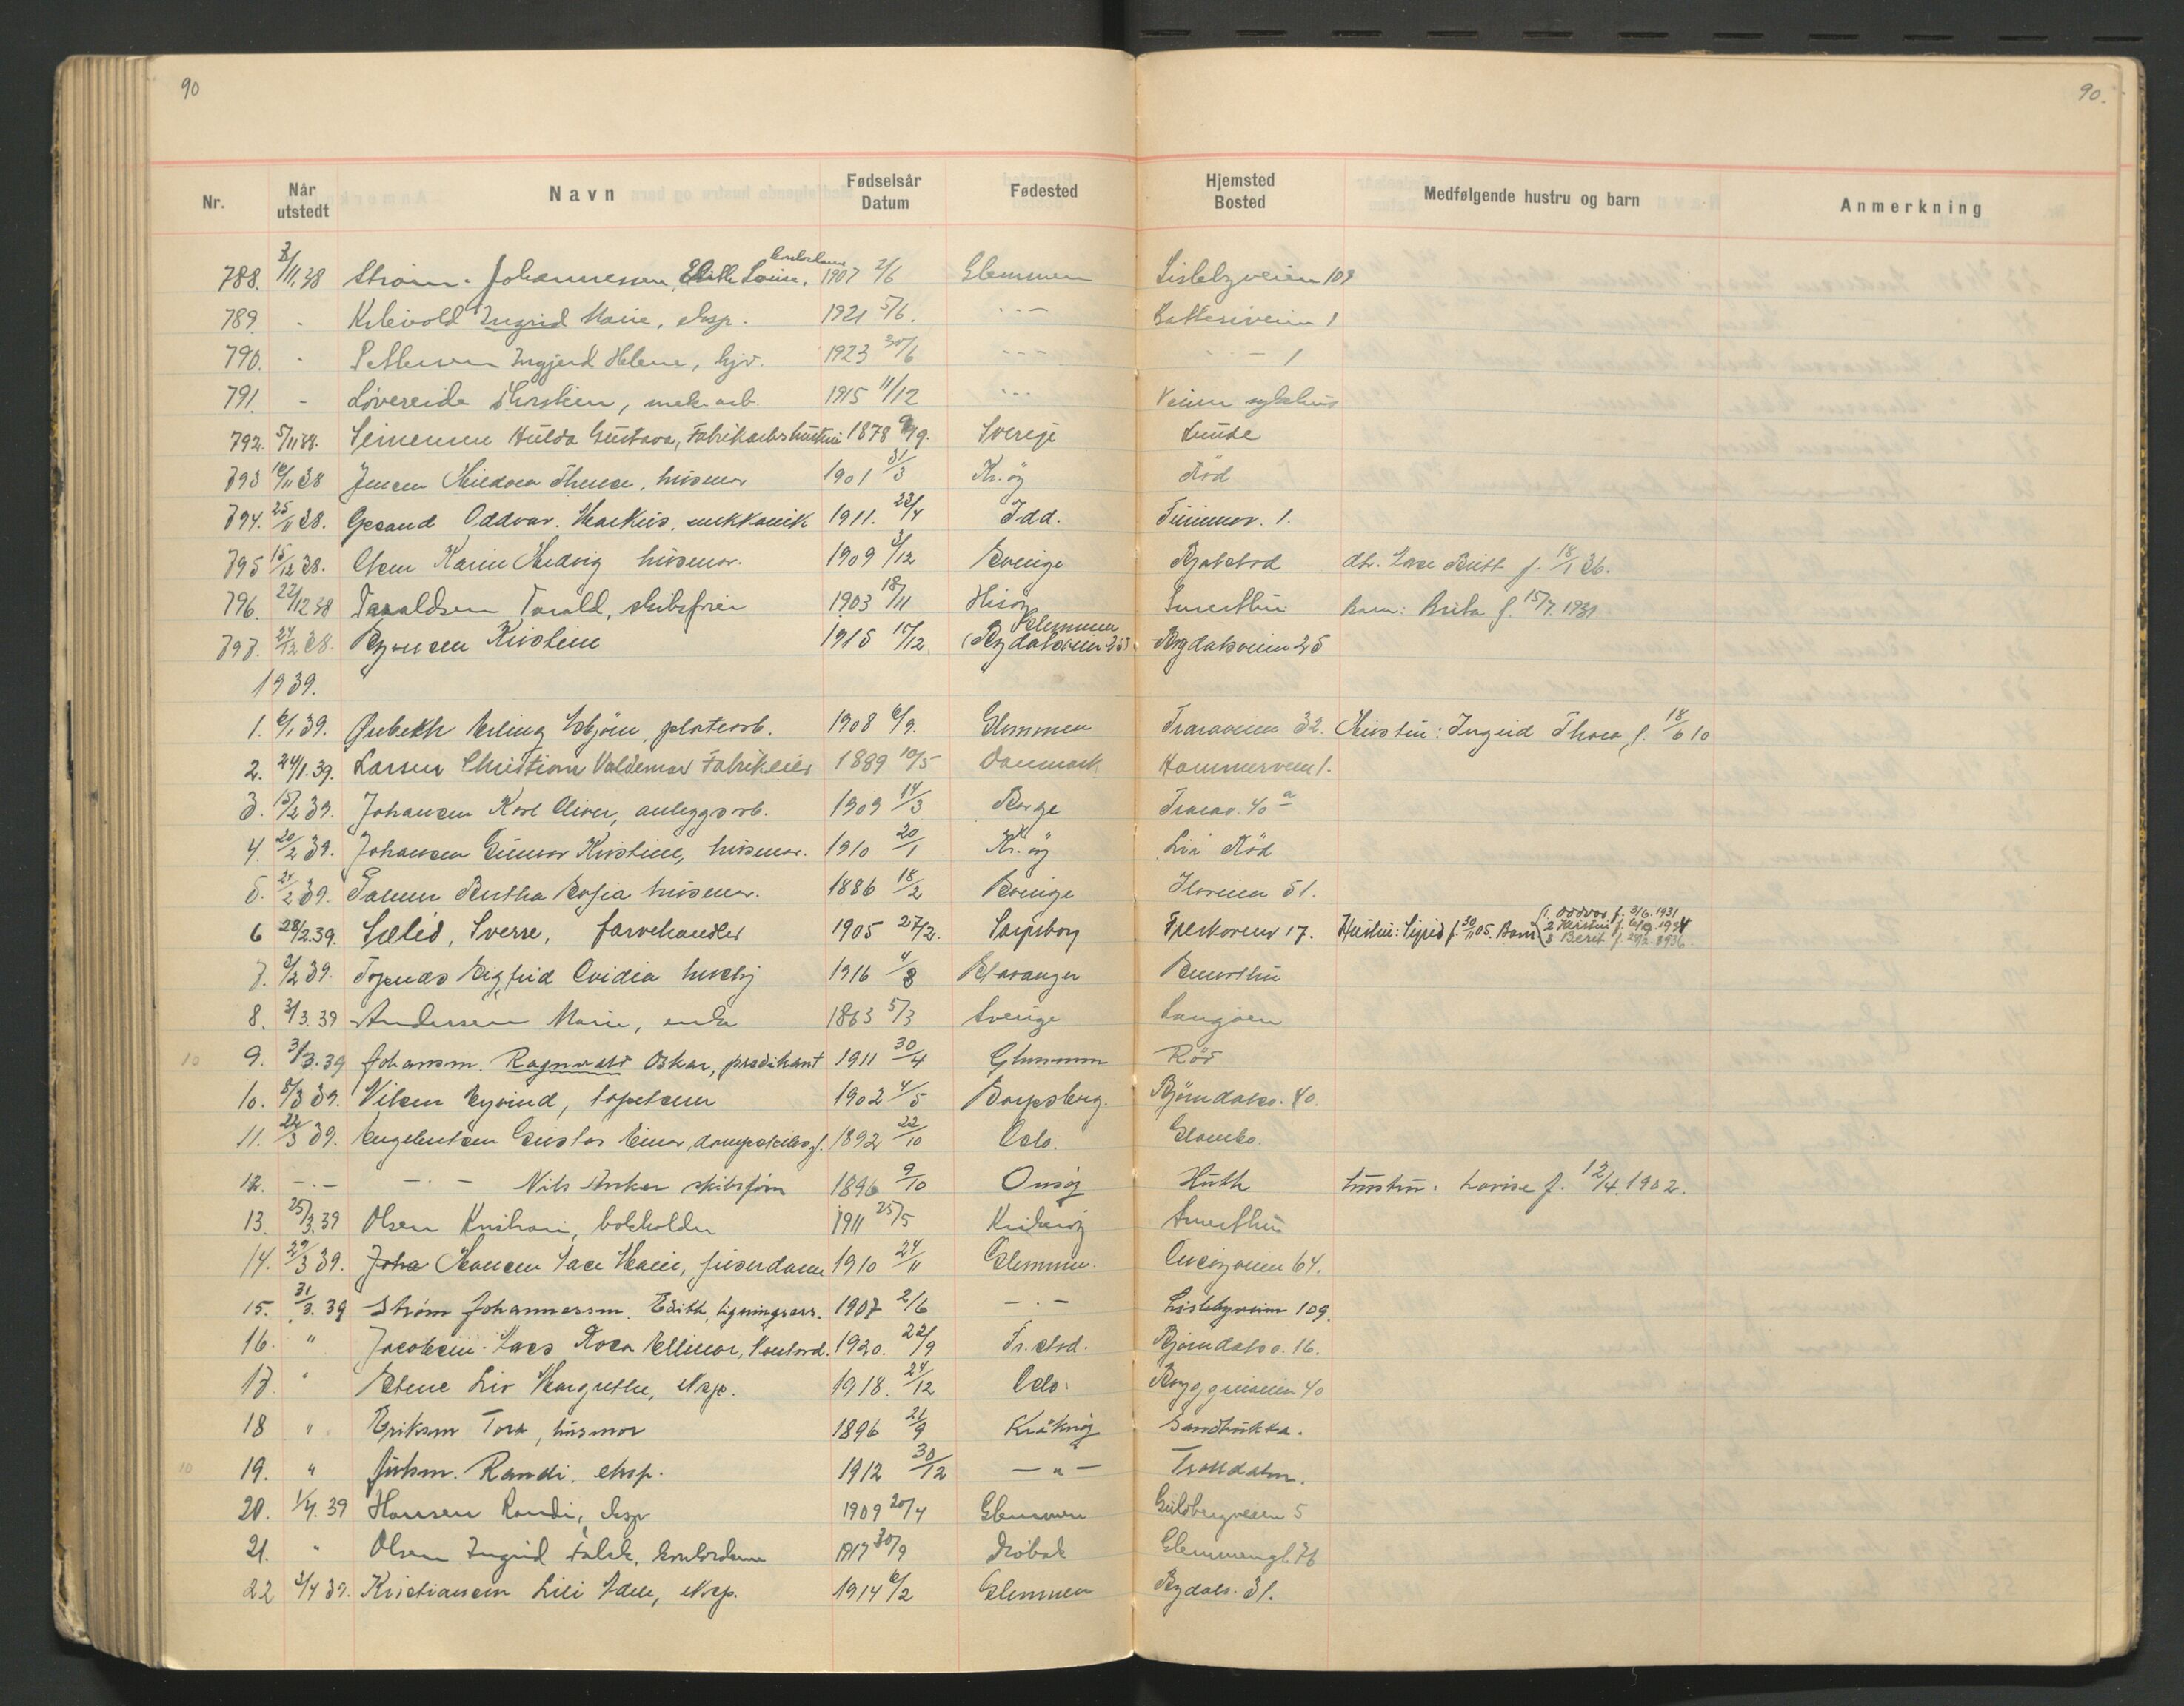 90
90.
Nr. Når utstedt Navn Fødselsår Datum Fødested Hjemsted Bosted Medfølgende hustru og barn Anmerkning
788. 3/11.38 Strøm-Johannessen, Edith Louise, kontordame 1907 2/6 Glemmen Lislebyveien 109
789. - Kilevold Ingrid Marie, eksp. 1921 5/6. - - - Batteriveien 1
790. - Pettersen Ingjerd Helene, hjv. 1923 30/6 - - - - - 1
791. - Løvereide Thorstein, mek. arb. 1915 11/12 - - - Veum sykehus
792. 5/11 38. Hulda Gustava, Fabrikarb. hustru 1878 /9. Sverige Lunde
793 16/11 38 Jensen Therese, husmor 1901 31/3 Kr.øy Rød
794. 25/11 38. Oddvar Markus, mekkanik 1911. 23/4 Idd. 1.
795 15/12 38. Olsen Karin Hedvig husmor. 1909 /12 Sverige dtr. Britt f. 18/1 36.
796. 22/12 38 Taraldsen Tarald, skibsfører 1903 18/11 Hisøy Smertu Barn: Brita f. 15/7. 1931
797. 24/12 38. Kristine 1915 17/12. Glemmen (Bydalsveien 25) Bydalsveien 25
1939.
1. 6/1 39. Ørebekk Erling Esbjørn, platearb. 1908 6/9. Glemmen Traraveien 32. Hustru: Ingrid Thora, f. 18/6 10
2. 24/1.39. Larsen Christian Valdemar Fabrikeier 1889 10/5 Danmark Hammerveien 1.
3. 15/2 39. Johansen Karl Oliver, anleggsarb. 1909 14/3 Borge Trarav. 40 a
4. 20/2 39. Johansen Gunvor Kirstine, husmor. 1910 20/1 Kr. øy Lia Rød
5. 24/2 39. Bertha Sofia husmor. 1886 18/2 Sverige 51.
6 28/2.39. Sælid, Sverre, farvehandler 1905 27/2. Sarpsborg 17. Hustru: Sigrid f. 30/11 05. Barn (1 Oddvar f. 3/6. 1931
2 Kirsten f. 6/9. 1934
3 Berit f. 29/2. 1936
7. 2/2 39. Sigfrid Ovidia hushj 1916 4/8 Stavanger Smertu
8. 3/3.39 Andersen Marie, enke 1863 5/3 Sverige Langøen
10 9. 3/3.39 Johansen. Ragnvald Oskar, predikant 1911 30/4 Glemmen Rød
10. 8/3 39. Nilsen Eyvind, tapetserer 1902 4/5 Sarpsborg. Bjørndalsv. 40.
11. 22/3 39. Engebretsen Gustav Einar, dampskibsf. 1892 22/10 Oslo. Glombo.
12. -.- -.- Nils Anker skibsfører 1896 9/10 Onsøy Huth hustru. Lovise f. 12/4. 1902.
13. 25/3.39 Olsen Kristian, bokholder 1911 25/5 Kråkerøy Smertu
14. 29/3 39. Joha Hansen Marie, frisérdame 1910 24/11 Glemmen. Onsøyveien 64.
15. 31/3. 39 Strøm Johannessen. Edith, ligningsass. 1907 2/6 -.- Lislebyveien 109.
16. " Jacobsen Rosa Ellinor, Kontord. 1920. 22/9 Fr.stad. Bjørndalsv. 16.
17. " Stene Liv Margrethe, eksp. 1918. 24/12 Oslo. 40
18 " Eriksen Tora, husmor 1896 21/9 Kråkerøy Sandbukka.
10 19. " Juhsen. Randi, eksp. 1912 30/12 - " - Trolldalen.
20. 1/4. 39 Hansen Randi, eksp 1909 20/4 Glemmen Guldbergveien 5
21. " Olsen Ingrid Falck, kontordame 1917 30/9 Drøbak Glemmengt. 76
22 3/4 39. Kristiansen Lili Adele, eksp. 1914 6/2 Glemmen Bydals. 31.